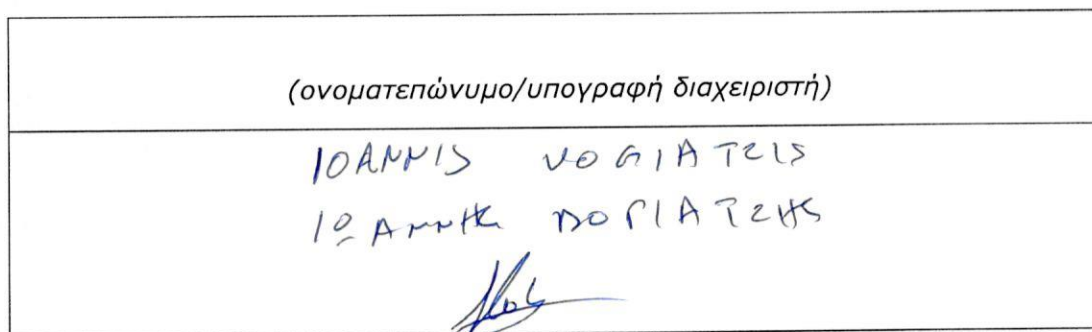 (ονοματεπώνυμο/υπογραφή διαχειριστή)
IOANNIS VOGIATZIS
ΙΩΑΝΝΗΣ ΒΟΓΙΑΤΖΗΣ